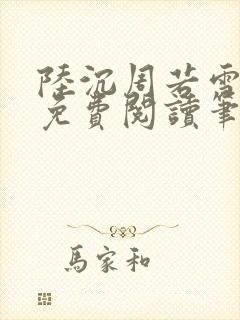 陸沉周若雪
免費閱讀筆
馬家和